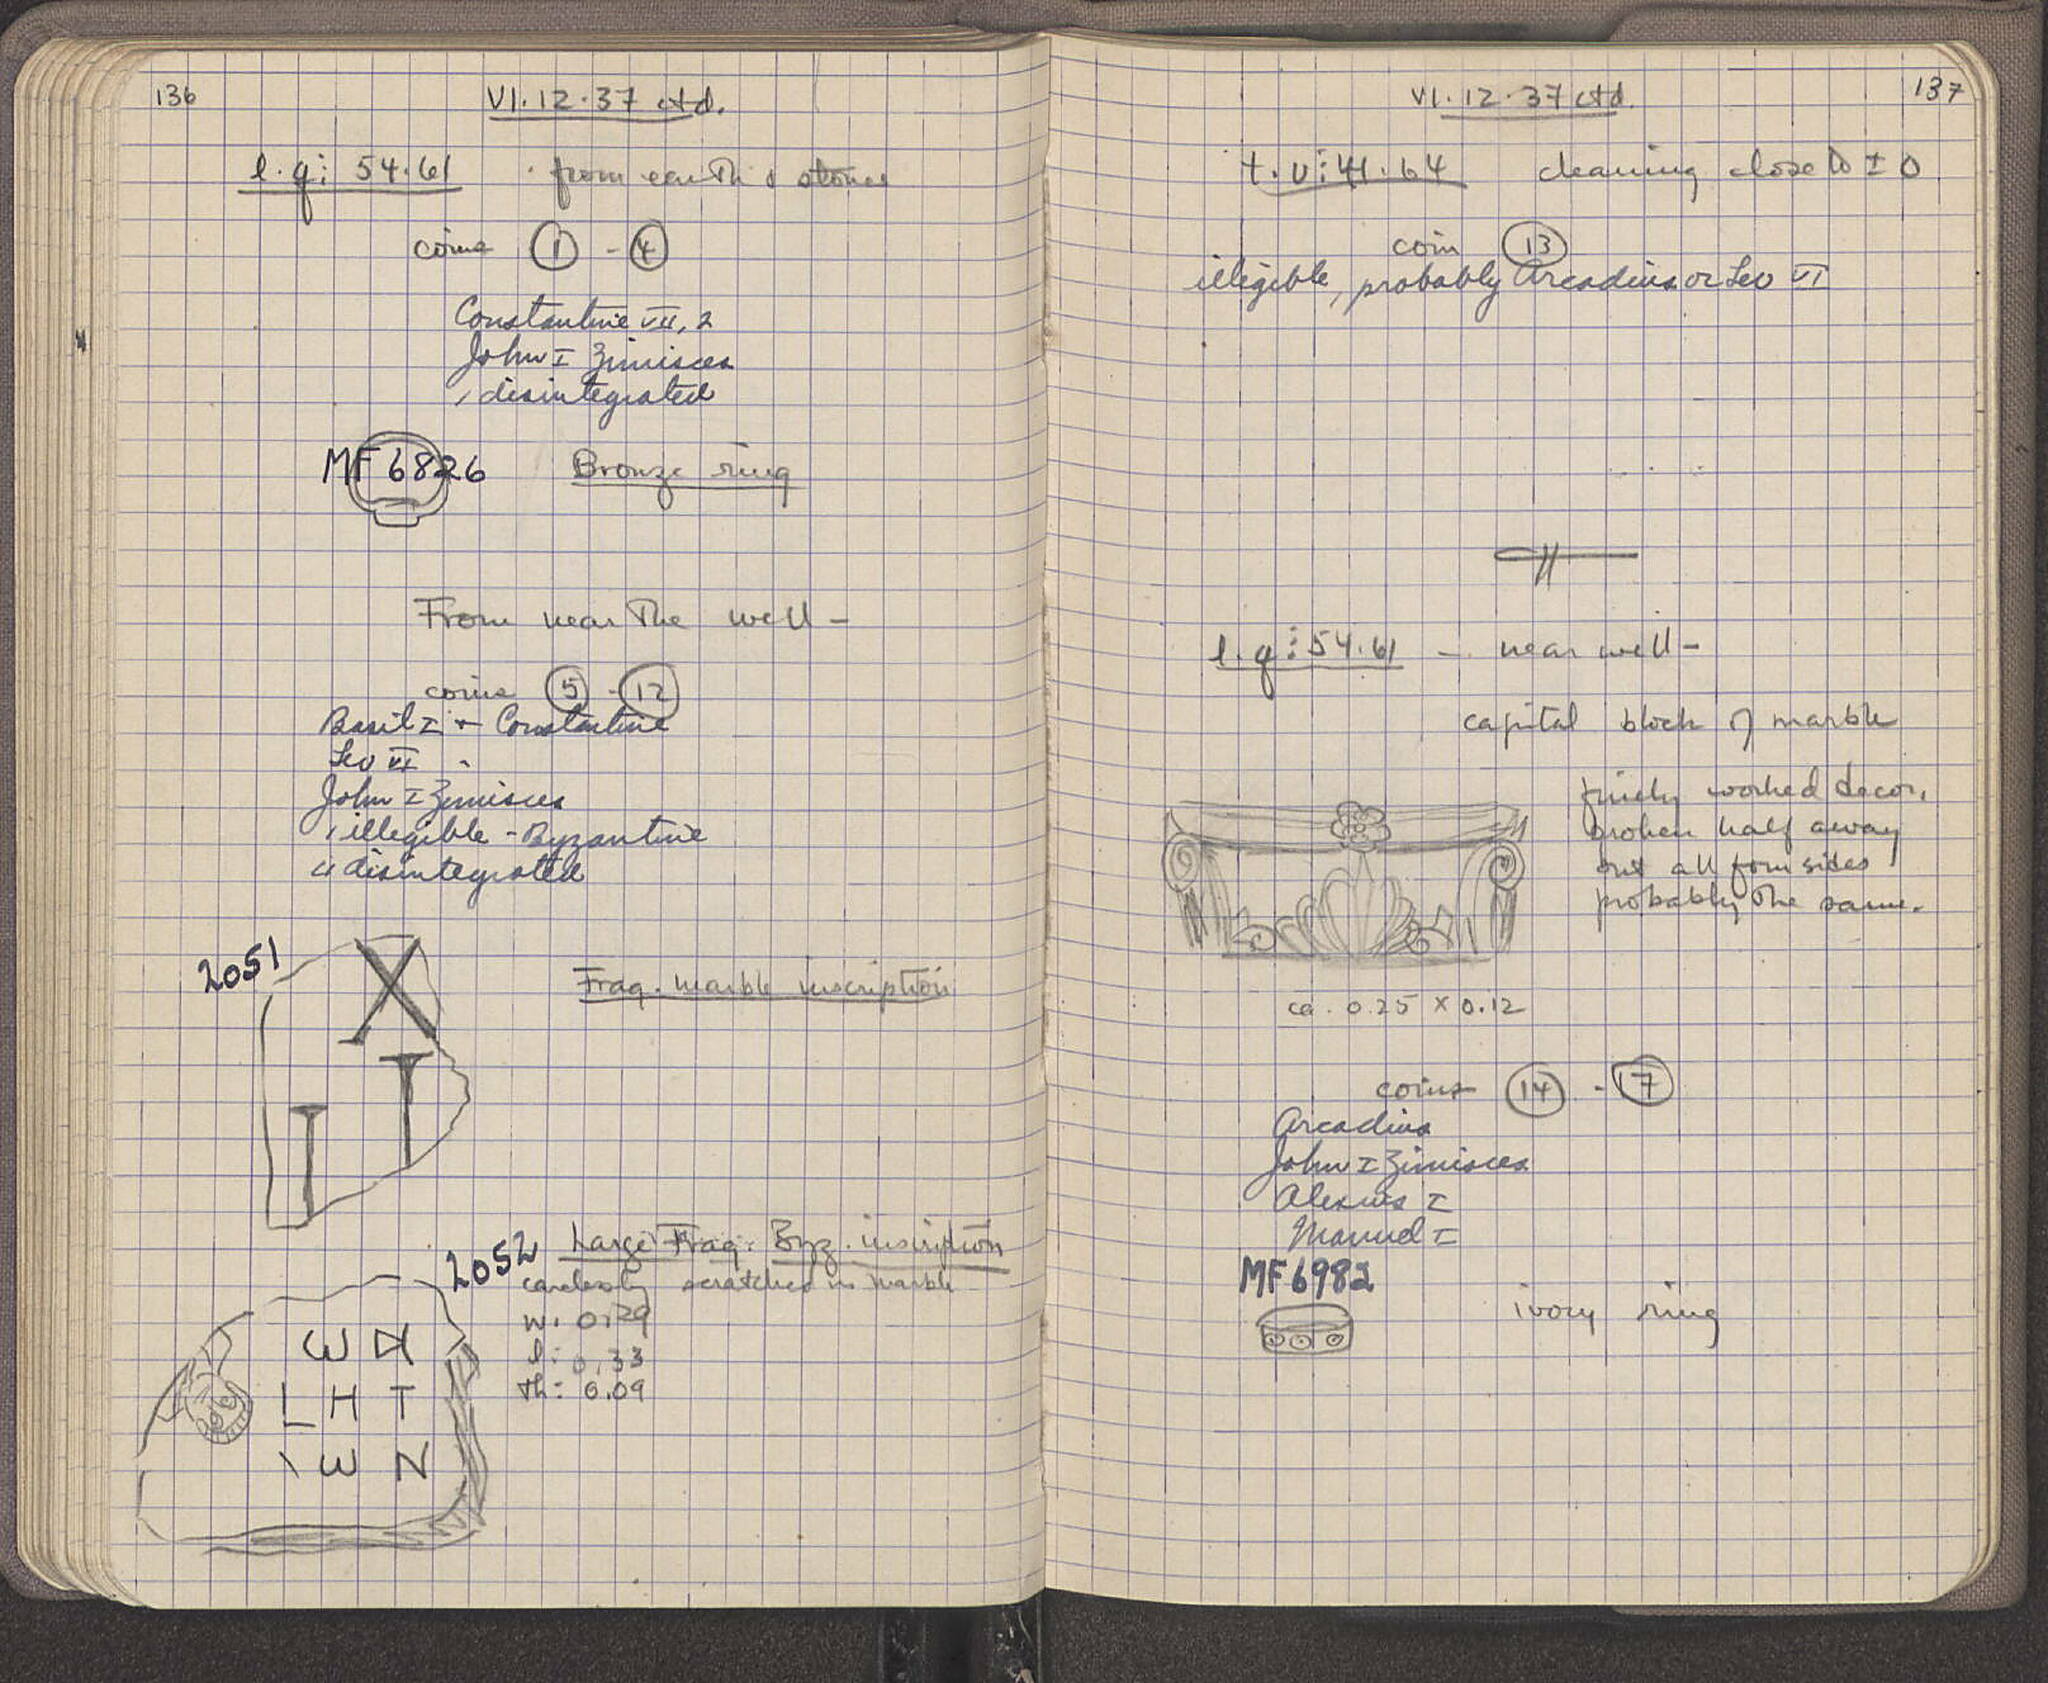 136
VI.12.37 ctd.
l.q: 54.61 from earth & stones
coins 1 - 4
Constantine VII, 2
John I Zimisces
1 disintegrated
MF 6826 Bronze ring
From near the well -
coins 5 - 12
Basil I + Constantine
Leo VI
John I Zimisces
1 illegible - Byzantine
4 disintegrated
2051
X
I I
Frag. marble inscription
2052 Large Frag. Byz. inscription
carelessly scratched in marble
W. 0.29
l: 0.33
Th: 0.09
W
L H T
\ W N
137
VI.12.37 ctd.
t.v: 41.64 cleaning close to ± 0
coin 13
illegible, probably Arcadius or Leo VI
l.q: 54.61 - near well -
capital block of marble
finely worked decor,
broken half away
but all four sides
probably the same.
ca. 0.25 X 0.12
coins 14 - 17
Arcadius
John I Zimisces
Alexius I
Manuel I
MF 6982
ivory ring